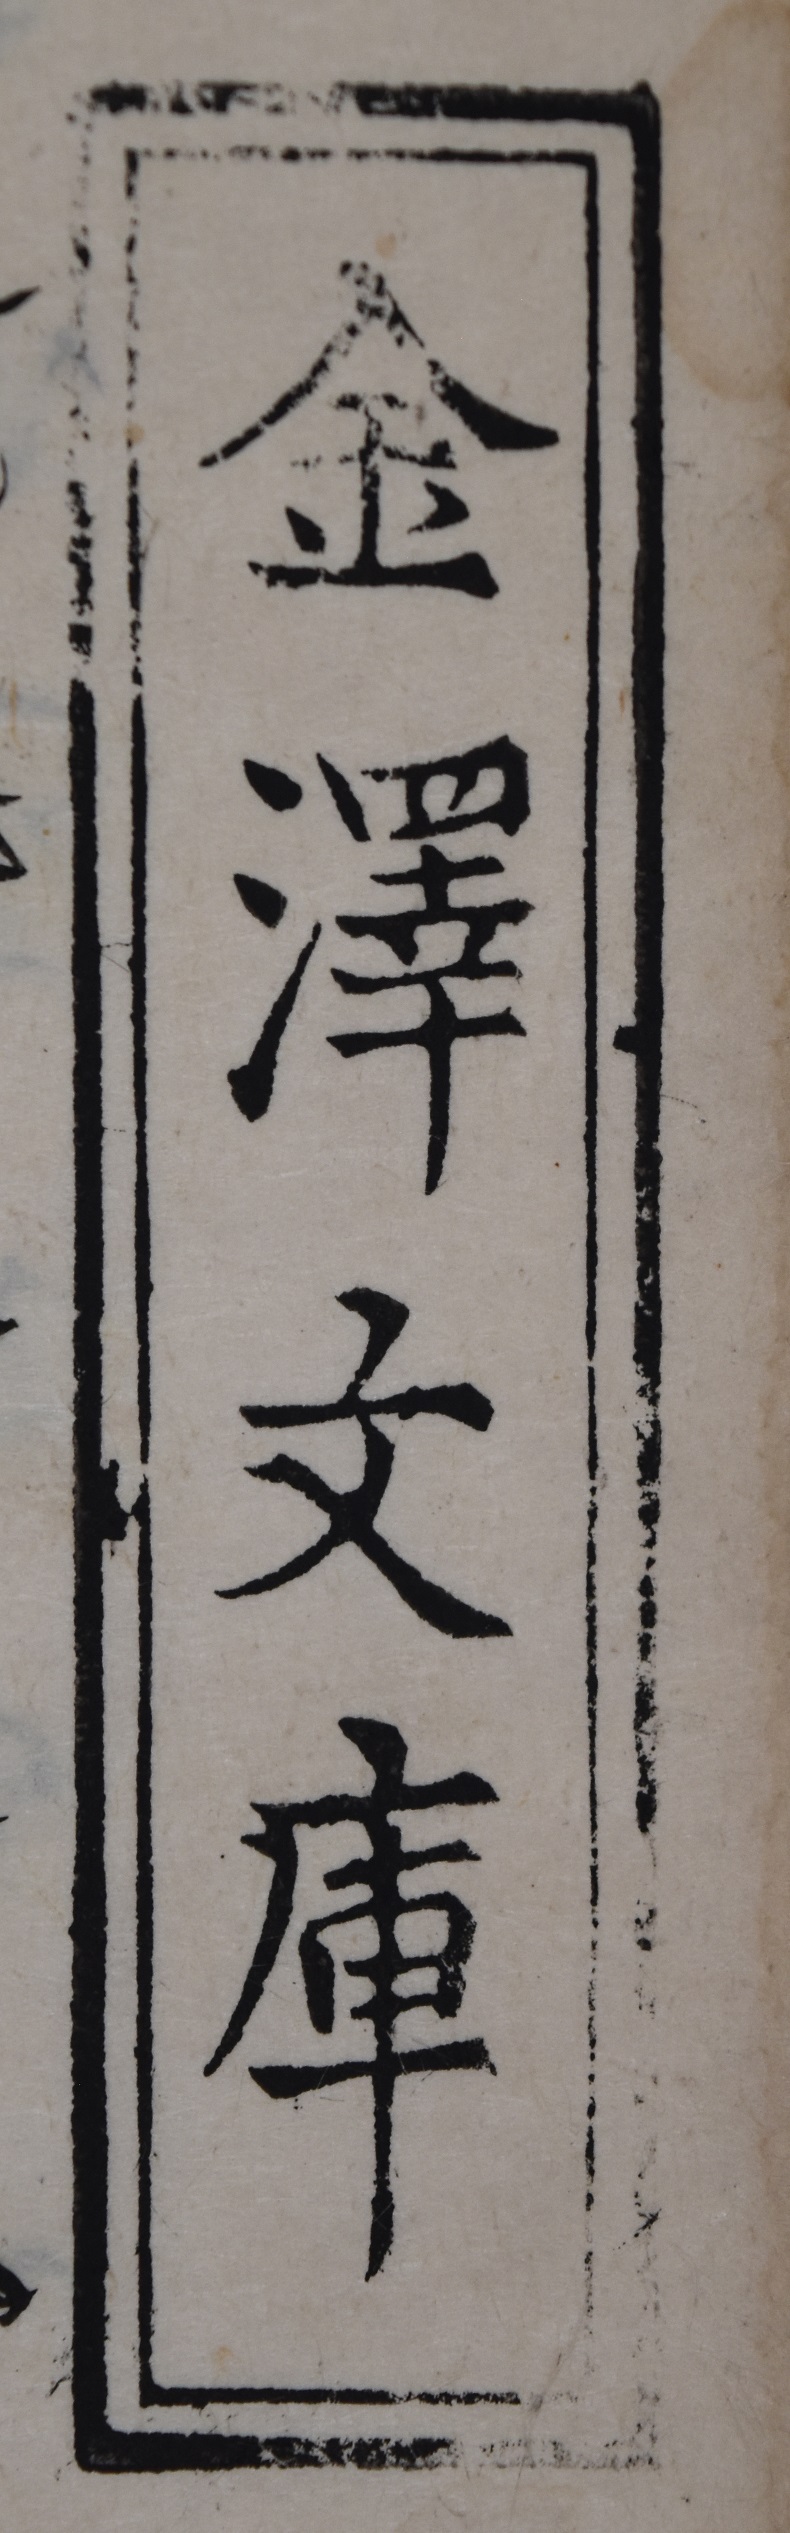 金澤文庫